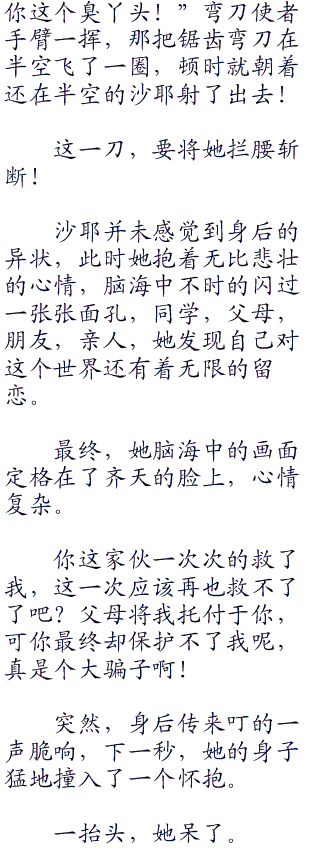 你这个臭丫头！”弯刀使者
手臂一挥，那把锯齿弯刀在
半空飞了一圈，顿时就朝着
还在半空的沙耶射了出去！
这一刀，要将她拦腰斩
断！
沙耶并未感觉到身后的
异状，此时她抱着无比悲壮
的心情，脑海中不时的闪过
一张张面孔，同学，父母，
朋友，亲人，她发现自己对
这个世界还有着无限的留
恋。
最终，她脑海中的画面
定格在了齐天的脸上，心情
复杂。
你这家伙一次次的救了
我，这一次应该再也救不了
了吧？父母将我托付于你，
可你最终却保护不了我呢，
真是个大骗子啊！
突然，身后传来叮的一
声脆响，下一秒，她的身子
猛地撞入了一个怀抱。
一抬头，她呆了。